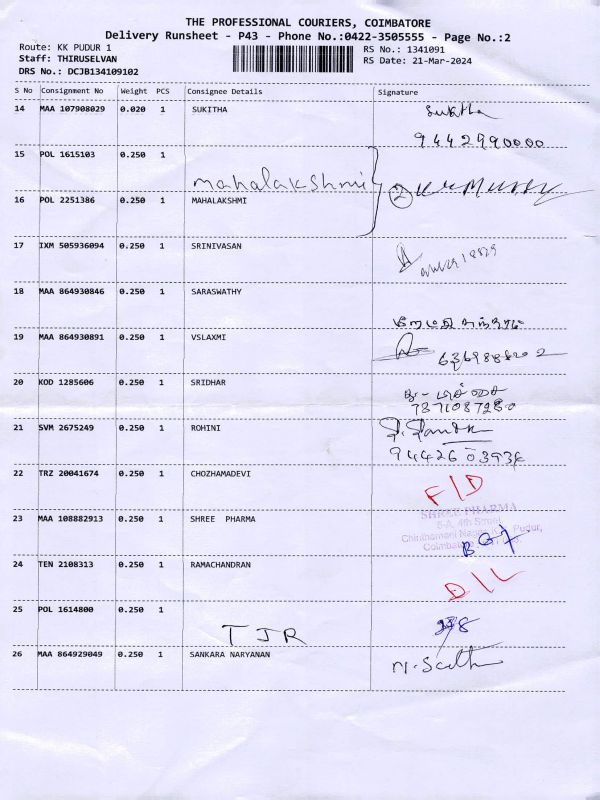 THE PROFESSIONAL COURIERS, COIMBATORE
Delivery Runsheet - P43 - Phone No.:0422-3505555 - Page No.:2
Route: KK PUDUR 1
Staff: THIRUSELVAN
DRS No.: DCJB134109102
RS No.: 1341091
RS Date: 21-Mar-2024
S No Consignment No Weight PCS Consignee Details Signature
14 MAA 107908029 0.020 1 SUKITHA Sukitha
9442990000
15 POL 1615103 0.250 1
mahalakshmi
16 POL 2251386 0.250 1 MAHALAKSHMI 2
17 IXM 505936094 0.250 1 SRINIVASAN
18 MAA 864930846 0.250 1 SARASWATHY
19 MAA 864930891 0.250 1 VSLAXMI
20 KOD 1285606 0.250 1 SRIDHAR
7871087280
21 SVM 2675249 0.250 1 ROHINI
94426 03934
22 TRZ 20041674 0.250 1 CHOZHAMADEVI F/D
23 MAA 108882913 0.250 1 SHREE PHARMA SHREE PHARMA
5-A, 4th Street
Chinthamani Nagar, Pudur,
Coimbatore
24 TEN 2108313 0.250 1 RAMACHANDRAN D/L
25 POL 1614800 0.250 1
TJR
26 MAA 864929049 0.250 1 SANKARA NARYANAN